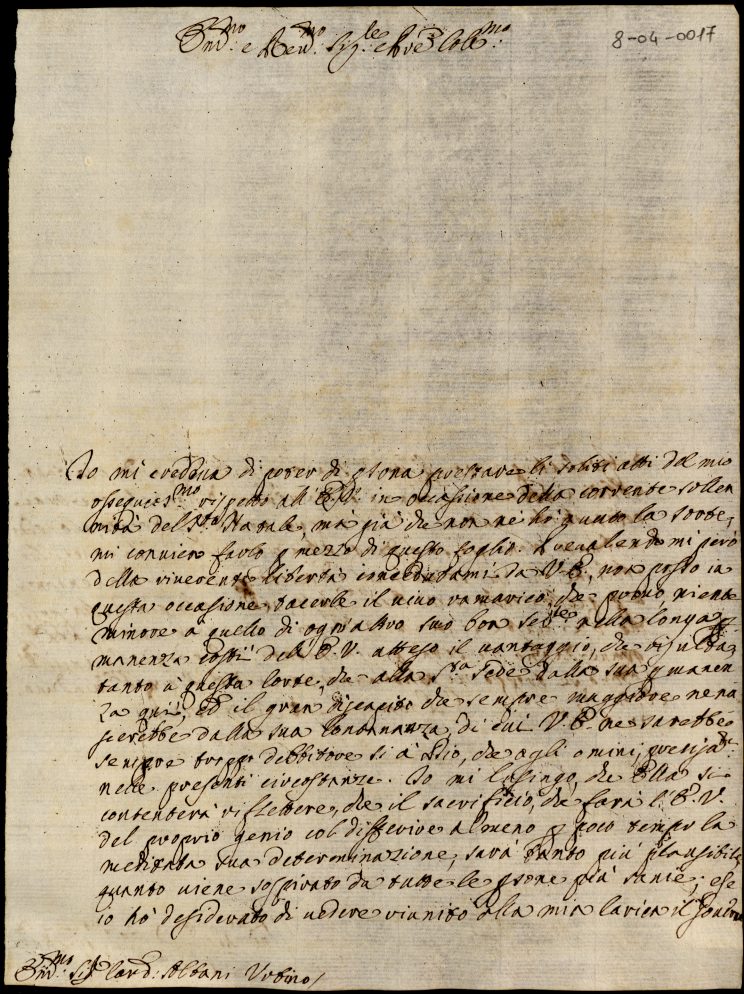 Em.mo e Rev.mo Sig.re e P.ne Col.mo
8-04-0017
Io mi credeva di poter di p̄sona prestare li soliti atti del mio
ossequios.mo rispetto all' E.V. in occasione della corrente sollen
nità del S.to Natale, mà già che non ne hò hauuto la sorte,
mi convien farlo p mezzo di questo foglio. Preualendomi però
della riverente libertà concedutami da V.E., non posso in
questa occasione tacerle il vivo ramarico, che provo niente
minore a quello di ogn'altro suo bon ser.re nella longa p
manenza costì dell' E.V. atteso il vantaggio, che risulta
tanto à questa Corte, che alla S.ta Sede dalla sua p manen
za quì, ed il gran discapito che sempre maggiore ne na
scerebbe dalla sua lontananza, di cui V.E. ne sarebbe
sempre troppo debbitore sì à Dio, che agli omini, precisa.te
nelle presenti circostanze. Io mi lusingo, che Ella si
contenterà riflettere, che il sacrificio, che farà l'E.V.
del proprio genio col differire almeno p poco tempo la
meditata sua determinazione, sarà tanto più plausibile
quanto viene sospirato da tutte le p̄sone più sanie; e se
io hò desiderato di vedere riunito alla mia carica il
Em.mo Sig.r Card: Albani Urbino